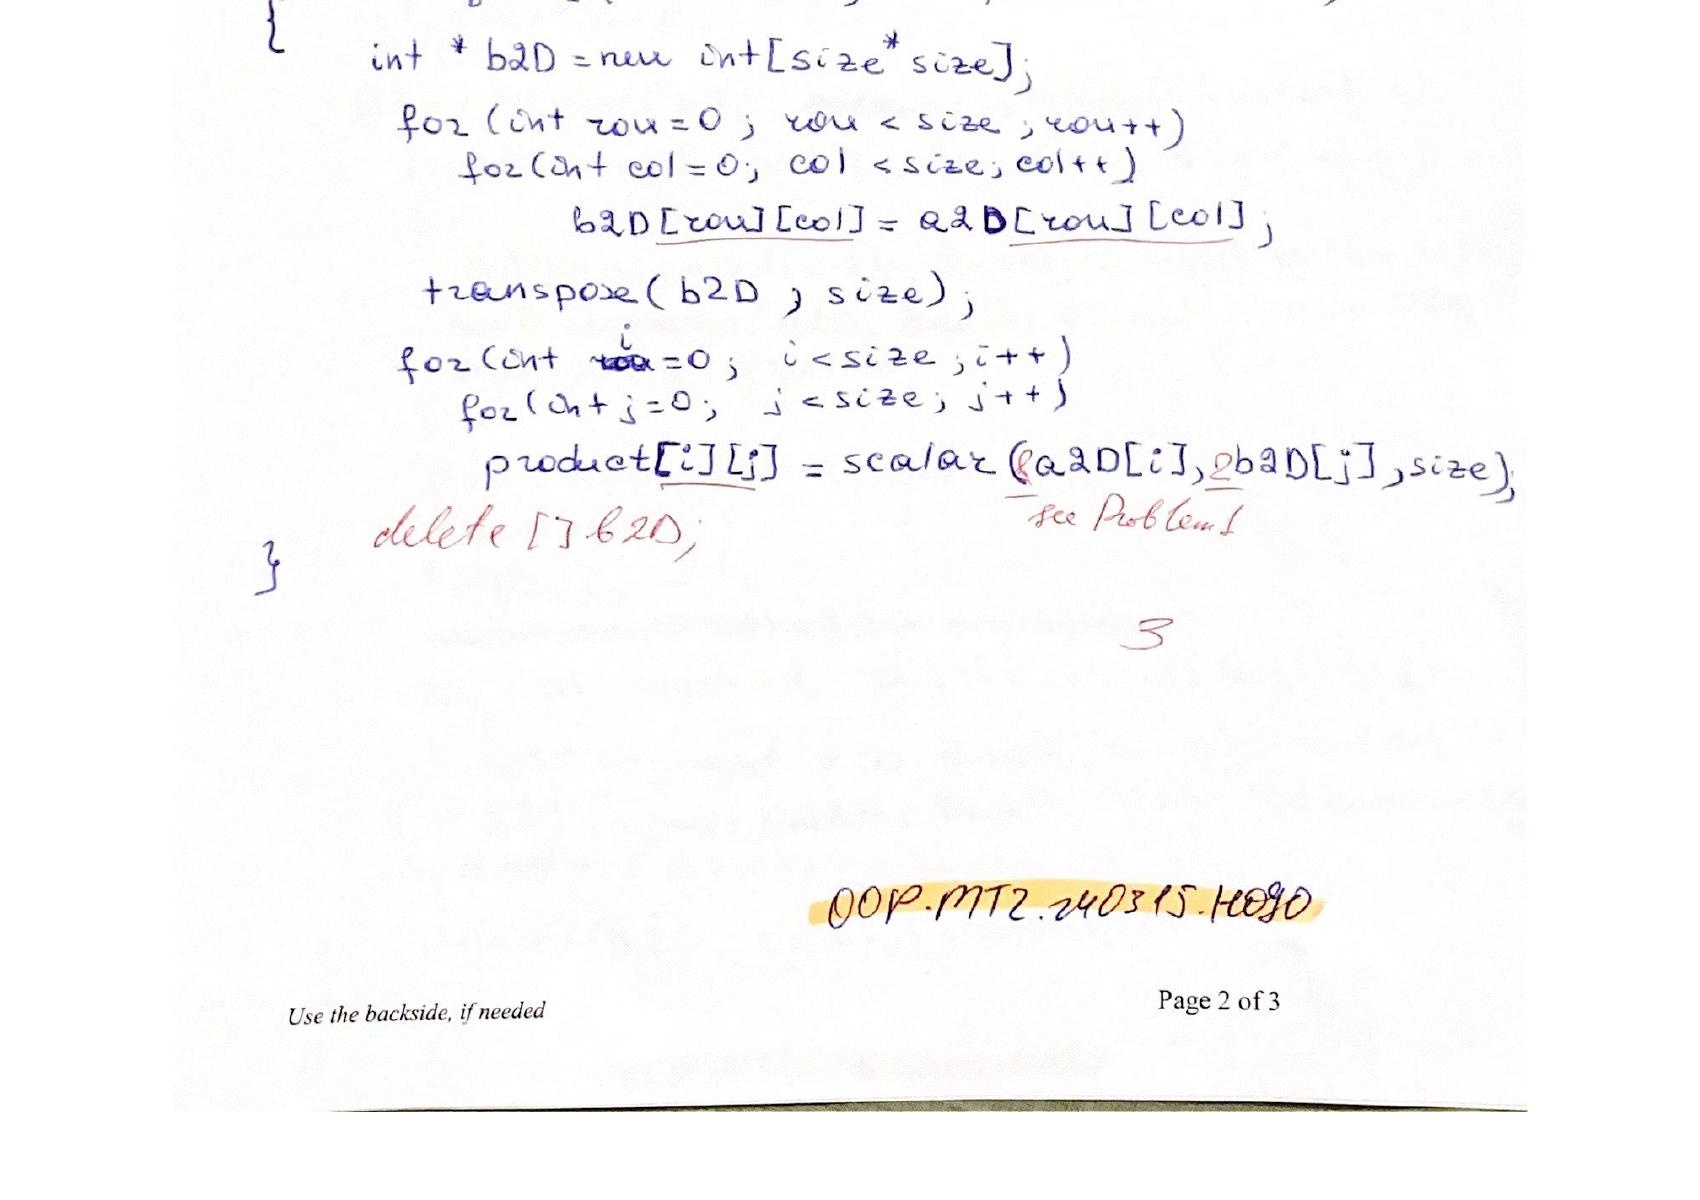 {
int * b2D = new int[size*size];
for (int row=0; row < size; row++)
for(int col=0; col <size; col++)
b2D[row][col] = a2D[row][col];
transpose(b2D, size);
for(int i=0; i<size; i++)
for(int j=0; j<size; j++)
product[i][j] = scalar(&a2D[i], &b2D[j], size);
see Problem 1
delete [] b2D;
}
3
OOP.MT2.240315.H090
Use the backside, if needed
Page 2 of 3